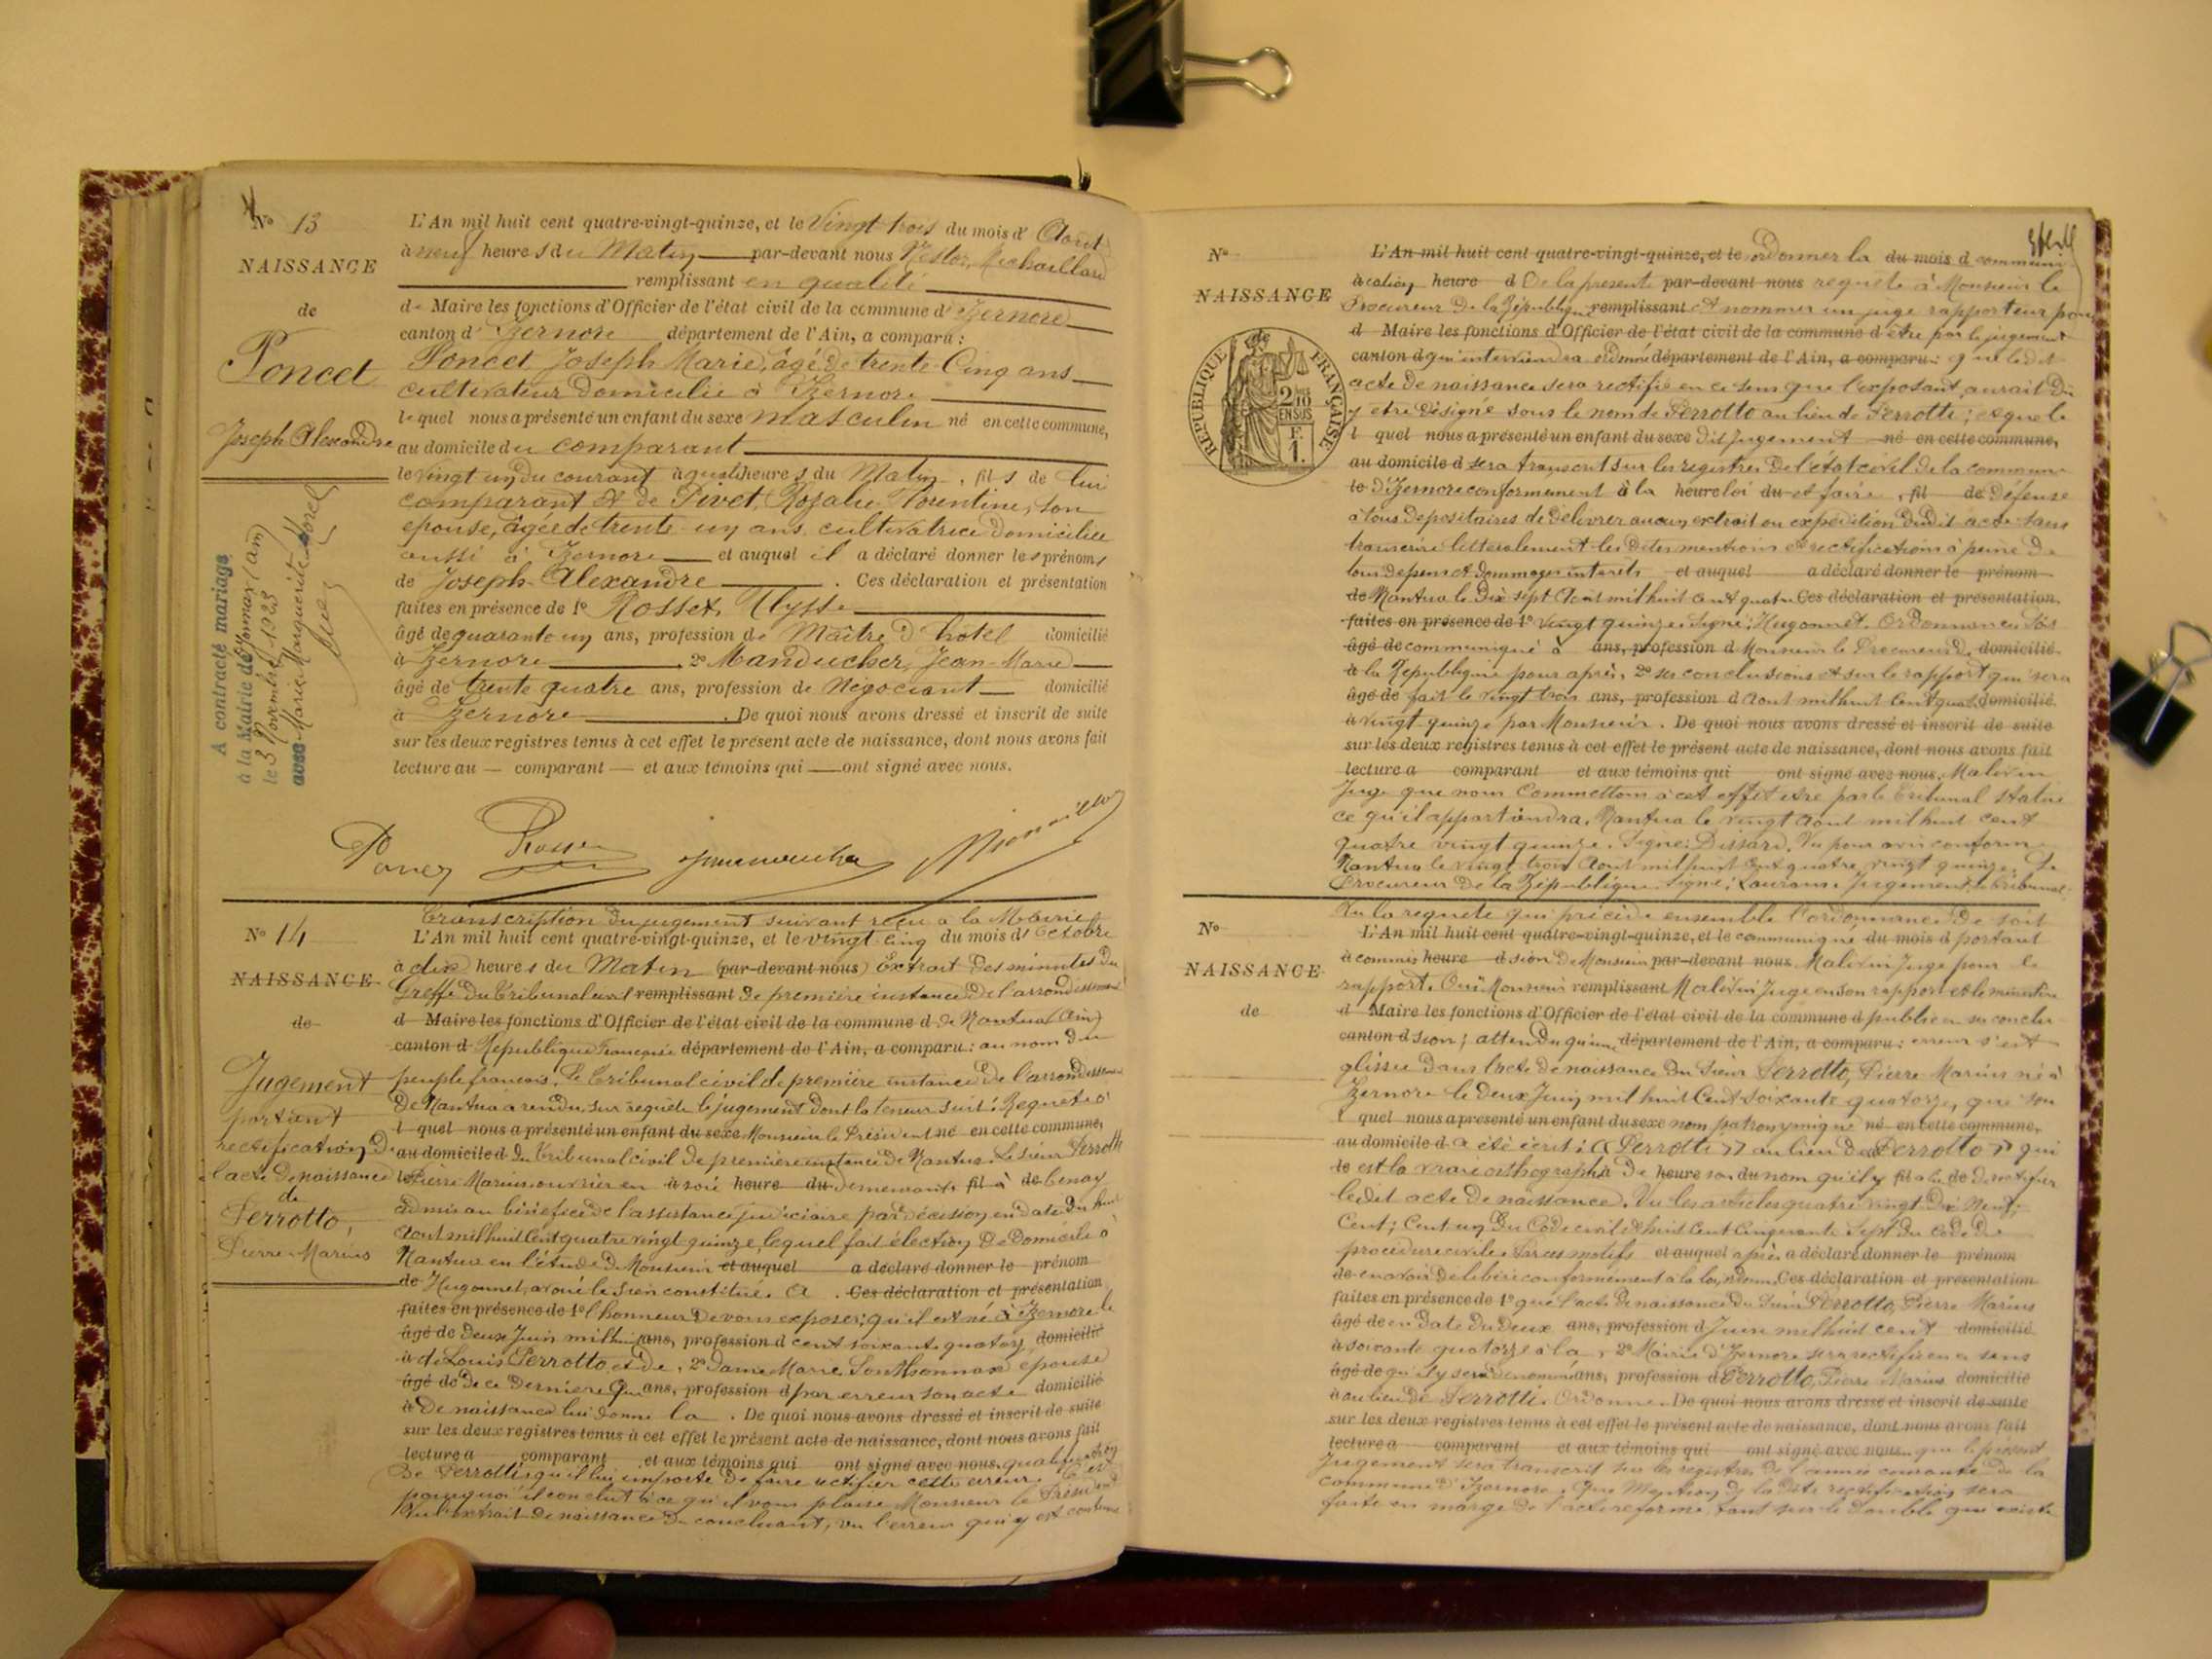 No 13
NAISSANCE
de
Poncet
Joseph Alexandre
A contracté mariage
à la Mairie de Oyonnax (ain)
le 3 Novembre 1923
avec Marie Marguerite Morel
L'An mil huit cent quatre-vingt-quinze, et le Vingt trois du mois d' Aout
à neuf heures du Matin par-devant nous Nestor Michaillard
remplissant en qualité
de Maire les fonctions d'Officier de l'état civil de la commune d' Izernore
canton d' Izernore département de l'Ain, a comparu :
Poncet Joseph Marie, âgé de trente Cinq ans
cultivateur domicilié à Izernore
lequel nous a présenté un enfant du sexe masculin né en cette commune,
au domicile du comparant
le vingt un du courant à quatre heures du Matin, fils de lui
comparant et de Pivet, Rozalie Florentine, son
epouse, âgée de trente un ans, cultivatrice domiciliée
aussi à Izernore et auquel il a déclaré donner les prénoms
de Joseph-Alexandre. Ces déclaration et présentation
faites en présence de 1o Rosset, Ulysse
âgé de quarante un ans, profession de Maître d'hôtel domicilié
à Izernore, 2o Manducher, Jean-Marie
âgé de trente quatre ans, profession de Négociant domicilié
à Izernore. De quoi nous avons dressé et inscrit de suite
sur les deux registres tenus à cet effet le présent acte de naissance, dont nous avons fait
lecture au comparant et aux témoins qui ont signé avec nous.
Poncet
No 14
NAISSANCE
de
Jugement
portant
rectification de
l'acte de naissance
de
Perrotto,
Pierre Marius
Transcription du jugement suivant reçu à la Mairie
L'An mil huit cent quatre-vingt-quinze, et le vingt cinq du mois d'Octobre
à dix heures du Matin (par-devant nous) Extrait des minutes du
Greffe du Tribunal civil remplissant de première instance de l'arrondissement
d Maire les fonctions d'Officier de l'état civil de la commune d de Nantua (Ain)
canton d République Française département de l'Ain, a comparu : au nom du
peuple français. Le Tribunal civil de première instance de l'arrondissement
de Nantua a rendu, sur requête le jugement dont la teneur suit : Requête à
l quel nous a présenté un enfant du sexe Monsieur le Président né en cette commune,
au domicile d du Tribunal civil de première instance de Nantua. Le sieur Perrotto
le Pierre Marius ouvrier en à soie heure du demeurant fil à de
admis au bénéfice de l'assistance judiciaire par décision en date du huit
Aout mil huit Cent quatre vingt quinze, lequel fait élection de domicile à
Nantua en l'étude de Monsieur et auquel a déclaré donner le prénom
de Hugonnet, avoué le sien constitué. A. Ces déclaration et présentation
faites en présence de 1o l'honneur de vous exposer; qu'il est né à Izernore le
âgé de deux Juin mil huit ans, profession d cent soixante quatorze domicilié
à de Louis Perrotto et de, 2o Dame Marie Sonthonnax épouse
âgé de de ce dernier Que ans, profession d par erreur son acte domicilié
à de naissance lui donne la. De quoi nous avons dressé et inscrit de suite
sur les deux registres tenus à cet effet le présent acte de naissance, dont nous avons fait
lecture a comparant et aux témoins qui ont signé avec nous. qualification
de Perrotti; qu'il lui importe de faire rectifier cette erreur. C'est
pourquoi il conclut à ce qu'il vous plaise Monsieur le Président
Vu l'extrait de naissance du concluant, vu l'erreur qui y est contenue
No
NAISSANCE
RÉPUBLIQUE FRANÇAISE
2/10
EN SUS
F.
1.
L'An mil huit cent quatre-vingt-quinze, et le ordonner la du mois d communi-
à cation heure d De la presente par-devant nous requête à Monsieur le
Procureur de la République remplissant et nommer un juge rapporteur pour
d Maire les fonctions d'Officier de l'état civil de la commune d être par le jugement
canton d qui interviendra ordonné département de l'Ain, a comparu : que le dit
acte de naissance sera rectifié en ce sens que l'exposant aurait dû
y être désigné sous le nom de Perrotto au lieu de Perrotti; et que le
l quel nous a présenté un enfant du sexe dit Jugement né en cette commune,
au domicile d sera transcrit sur les registres de l'état civil de la commune
le d'Izernore conformément à la heure loi du et faire, fil de défense
à tous dépositaires de délivrer aucun extrait ou expédition dudit acte sans
transcrire littéralement les dites mentions et rectifications à peine de
tous dépens et dommages intérêts et auquel a déclaré donner le prénom
de Nantua le Dix sept Aout mil huit cent quatre Ces déclaration et présentation
faites en présence de 1o vingt quinze. Signé : Hugonnet. Ordonnance Sois
âgé de communiqué à ans, profession d Monsieur le Procureur de domicilié
à la République pour après, 2o ses conclusions et sur le rapport qui sera
âgé de fait le vingt trois ans, profession d Aout mil huit Cent quatre domicilié
à vingt quinze par Monsieur. De quoi nous avons dressé et inscrit de suite
sur les deux registres tenus à cet effet le présent acte de naissance, dont nous avons fait
lecture a comparant et aux témoins qui ont signé avec nous. Malivin
Juge que nous Commettons à cet effet être par le Tribunal statué
ce qu'il appartiendra. Nantua le vingt Aout mil huit cent
quatre vingt quinze. Signé : Dissard. Vu pour avis conforme
Nantua le vingt trois Aout mil huit Cent quatre vingt quinze. Le
Procureur de la République. Signé : Jugement. Le Tribunal
No
NAISSANCE
de
Vu la requête qui précède ensemble l'ordonnance de soit
L'An mil huit cent quatre-vingt-quinze, et le communiqué du mois d portant
à commis heure d sion de Monsieur par-devant nous Malivin Juge pour le
rapport. Ouï Monsieur remplissant Malivin Juge en son rapport et le ministère
d Maire les fonctions d'Officier de l'état civil de la commune d public en ses conclu-
canton d sion; attendu qu'une département de l'Ain, a comparu : erreur s'est
glissée dans l'acte de naissance du Sieur Perrotto, Pierre Marius né à
Izernore le deux Juin mil huit Cent soixante quatorze, que son
l quel nous a présenté un enfant du sexe nom patronymique né en cette commune,
au domicile d a été écrit : « Perrotti » au lieu de « Perrotto » qui
le est la vraie orthographe à De heure son du nom qu'il y fil a lieu de de rectifier
ledit acte de naissance. Vu les articles quatre vingt dix Neuf;
Cent; Cent un du Code civil et huit Cent Cinquante Sept du Code de
procédure civile. Par ces motifs et auquel après a déclaré donner le prénom
de en avoir délibéré conformément à la loi, ordonne Ces déclaration et présentation
faites en présence de 1o que l'acte de naissance du Sieur Perrotto, Pierre Marius
âgé de en date du Deux ans, profession d Juin mil huit cent domicilié
à soixante quatorze à la, 2o Mairie d'Izernore sera rectifié en ce sens
âgé de qu'il y sera dénommé ans, profession d Perrotto, Pierre Marius domicilié
à au lieu de Perrotti. Ordonne. De quoi nous avons dressé et inscrit de suite
sur les deux registres tenus à cet effet le présent acte de naissance, dont nous avons fait
lecture a comparant et aux témoins qui ont signé avec nous. que le présent
Jugement sera transcrit sur les registres de l'année courante de la
commune d'Izernore. Que Mention de la dite rectification sera
faite en marge de l'acte reformé, tant sur le double qui existe